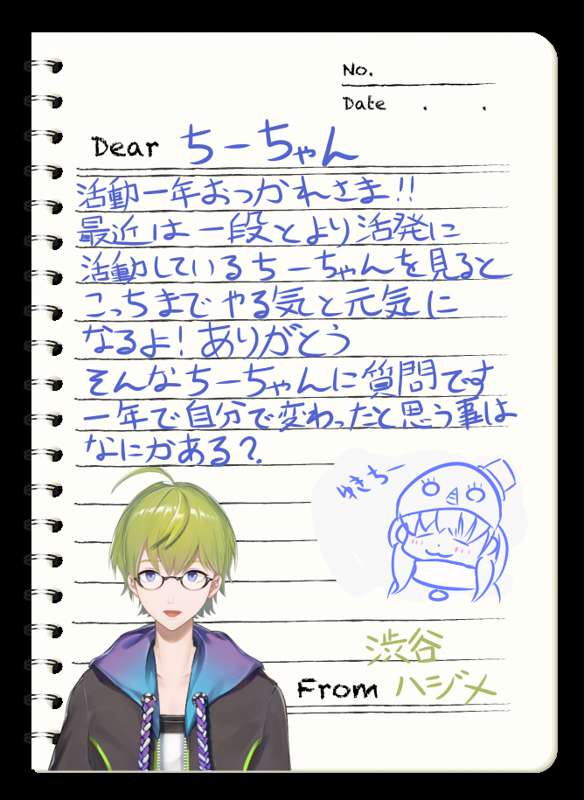 No.
Date . .
Dear ちーちゃん
活動一年おつかれさま!!
最近は一段とより活発に
活動しているちーちゃんを見ると
こっちまでやる気と元気に
なるよ!ありがとう
そんなちーちゃんに質問です
一年で自分で変わったと思う事は
なにかある?
ゆきちー
渋谷
From ハジメ